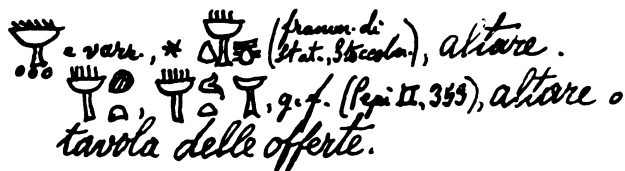 e varr., * (framm. di Stat., Stoccolm.), altare.
, , g. f. (Pepi II, 353), altare o
tavola delle offerte.